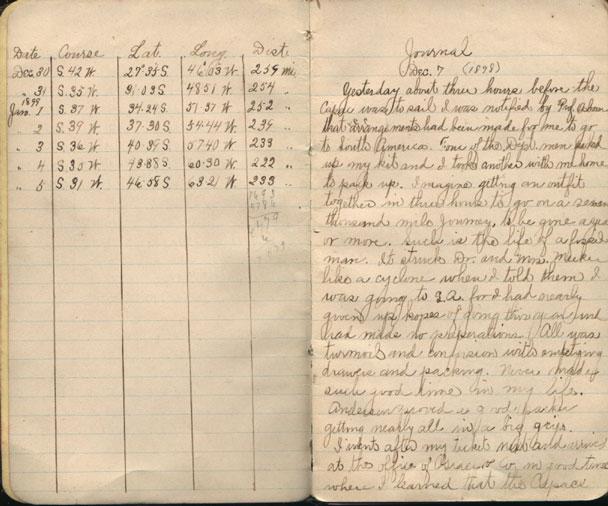 Date Course Lat. Long. Dist.
Dec. 30 S. 42 W. 27·35 S. 46·03 W. 259 mi.
" 31 S. 35 W. 31·03 S. 48 51 W. 254 "
1899
Jan. 1 S. 37 W. 34.24 S. 51·37 W. 252 "
" 2 S. 39 W. 37·30 S. 54·44 W. 239 "
" 3 S. 36 W. 40·39 S. 57 40 W. 233 "
" 4 S. 35 W. 43·38 S. 60·30 W. 222 "
" 5 S. 31 W. 46·58 S. 63·21 W. 233 "
Journal
Dec. 7 (1898)
Yesterday about three hours before the
was to sail I was notified by Prof. Osborn
that arrangements had been made for me to go
to South America. Four of the Dept. men packed
up my kit and I took another with me home
to pack up. I imagine getting an outfit
together in three hours to go on a seven
thousand mile journey, to be gone a year
or more. Such is the life of a fossil
man. It struck Dr. and Mrs.
like a cyclone when I told them I
was going to S.A. for I had nearly
given up hopes of going this year and
had made no preparations. All was
turmoil and confusion with emptying
drawers and packing. Never made
such good time in my life.
Anderson proved a good packer
getting nearly all in a big grip.
I went after my ticket next and arrived
at the office of & Co. in good time
where I learned that the